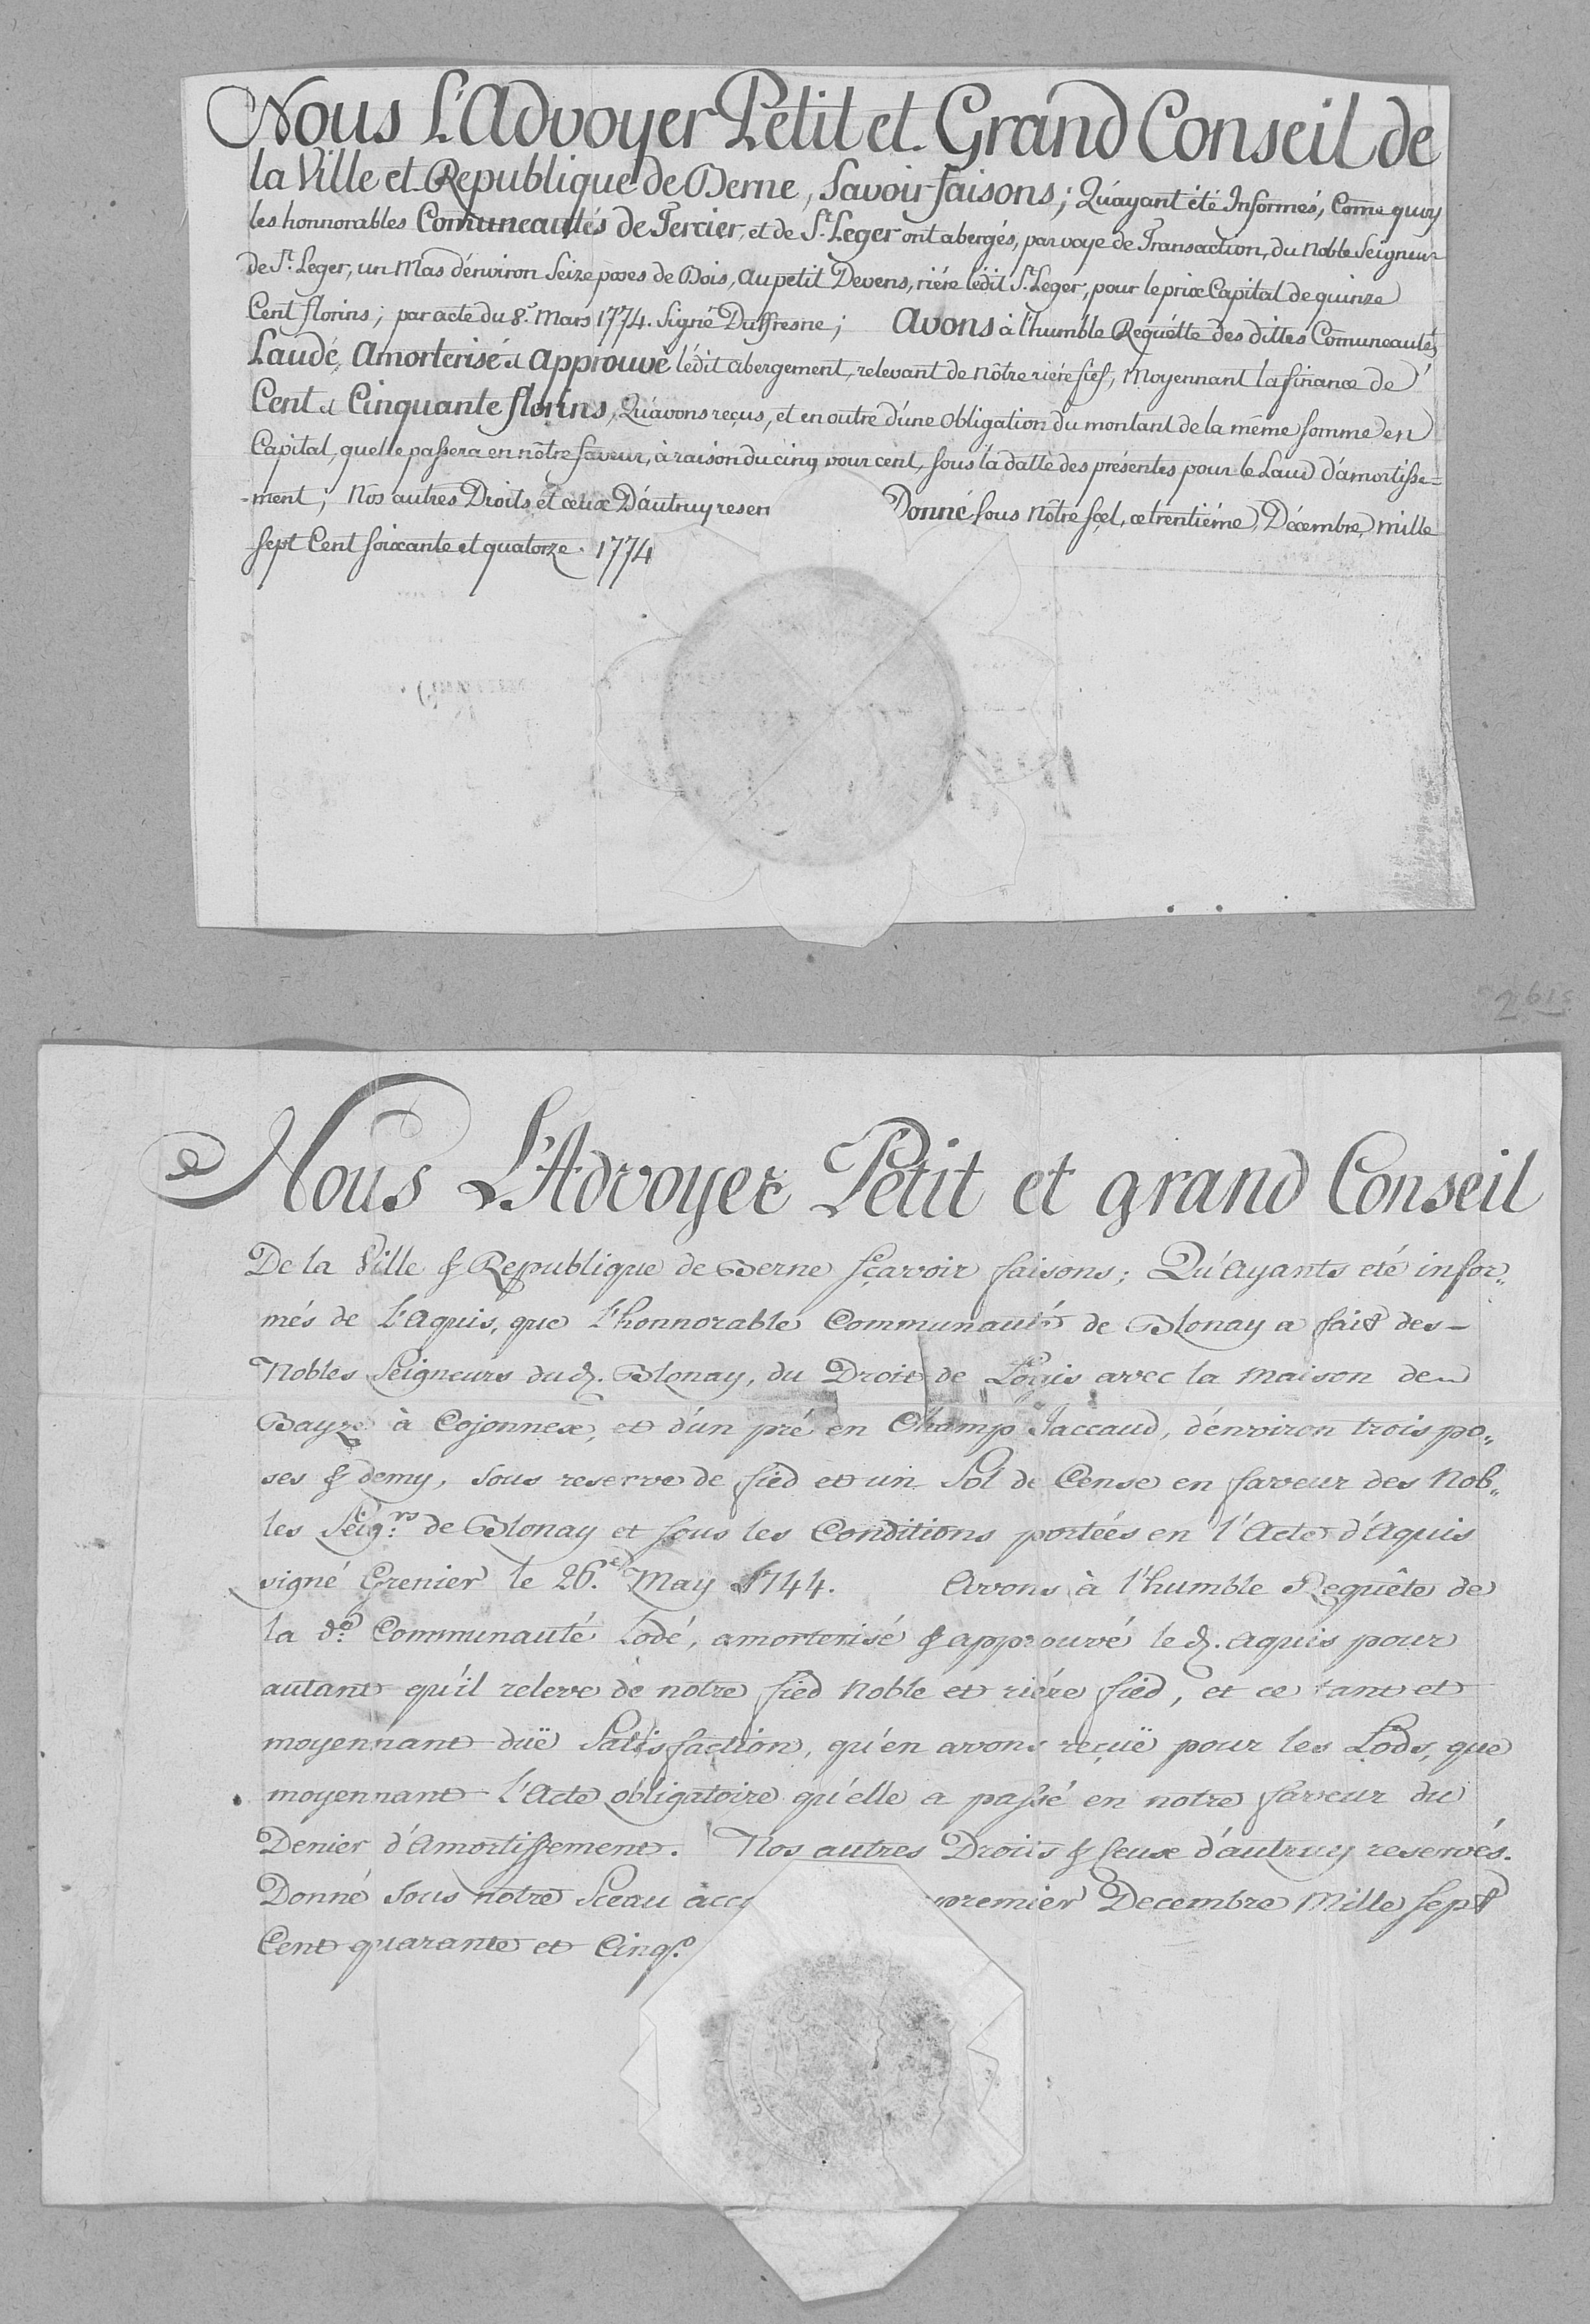 Nous L'Advoyer Petit et Grand Conseil de
la Ville et Republique de Berne, Savoir faisons; Qu'ayant été Informés, Come quoy
les honnorables Comuneautés de Tercier, et de St. Leger ont abergés, par voye de Transaction, du Noble Seigneur
de St. Leger, un Mas d'environ Seize poses de Bois, au petit Devens, riére lédit St. Leger, pour le prix Capital de quinze
Cent florins; par acte du 8e. Mars 1774. Signé Duffresne; Avons à l'humble Requétte des dittes Comuneautés
Laudé, Amorterisé et Approuvé lédit abergement, relevant de nôtre riére fief, Moyennant la finance de
Cent et Cinquante florins, Qu'avons reçus, et en outre d'une Obligation du montant de la même somme en
Capital, quelle passera en nôtre faveur, à raison du cinq pour cent, sous la datte des présentes pour le Laud d'amortisse=
-ment; Nos autres Droits et ceux D'autruy reser Donné sous Nôtre scel, ce trentiéme Décembre mille
sept Cent soixante et quatorze. 1774
2 bis
Nous L'Advoyer Petit et grand Conseil
De la Ville & Republique de Berne sçavoir faisons; Qu'Ayants eté infor„
més de l'Aquis, que l'honnorable Communauté de Blonay a fait des-
Nobles Seigneurs dud. Blonay, du Droit de Logis avec la Maison de
Bayze à Cojonnex, et d'un pré en Champ Jaccaud, d'environ trois po„
ses & demy, sous reserve de fied et un Sol de Cense en faveur des Nob„
les Seigrs. de Blonay et sous les Conditions portées en l'Acte d'Aquis
signé Grenier le 26.e May 1744. Avons à l'humble Requête de
la de. Communauté Lodé, amorterisé & approuvé le d. aquis pour
autant qu'il releve de notre fied Noble et riére fied, et ce tant et
moyennant duë Satisfaction, qu'en avons reçuë pour les Lods, que
moyennant l'Acte obligatoire qu'elle a passé en notre faveur du
Denier d'Amortissement. Nos autres Droits & ceux d'autruy reservés.
Donné sous notre Sceau acc premier Decembre Mille sept
Cent quarante et Cinq.